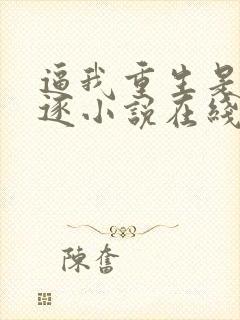 逼我重生是
逐小說在綫
陳奮